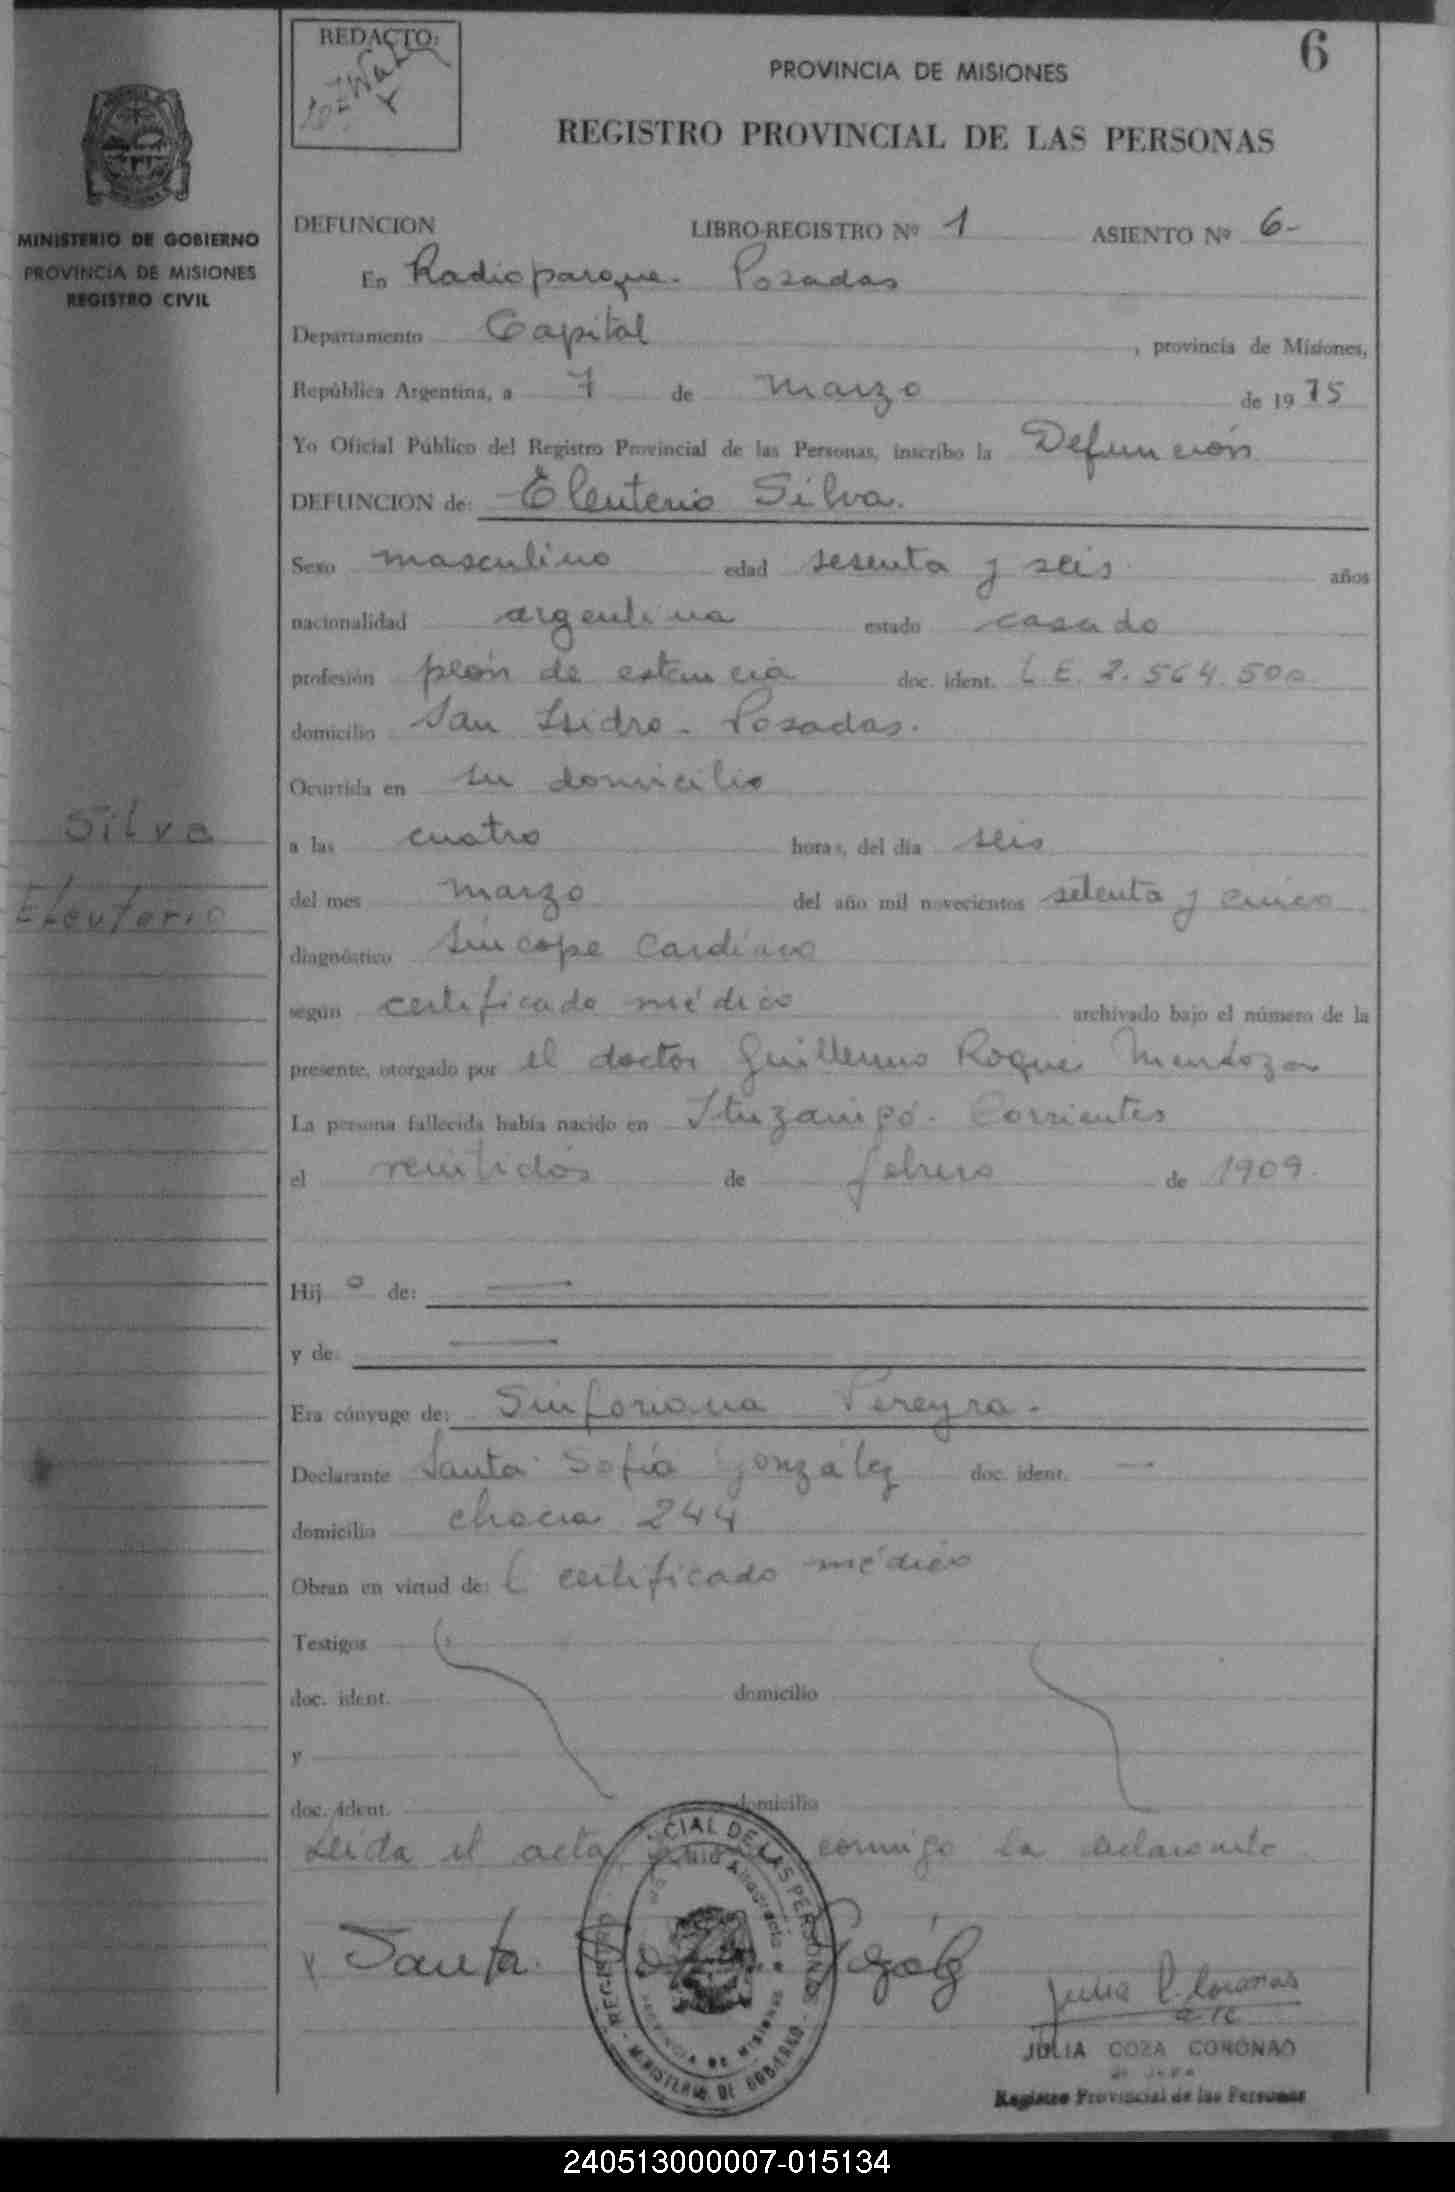 REDACTO:
6
PROVINCIA DE MISIONES
REGISTRO PROVINCIAL DE LAS PERSONAS
MINISTERIO DE GOBIERNO
PROVINCIA DE MISIONES
REGISTRO CIVIL
DEFUNCION LIBRO-REGISTRO Nº 1 ASIENTO Nº 6-
En Radioparque. Posadas
Departamento Capital, provincia de Misiones,
República Argentina, a 7 de marzo de 1975
Yo Oficial Público del Registro Provincial de las Personas, inscribo la Defunción
DEFUNCION de: Eleuterio Silva.
Sexo masculino edad sesenta y seis años
nacionalidad argentina estado casado
profesión peón de estancia doc. ident. L.E. 2.564.500
domicilio San Isidro - Posadas.
Ocurrida en su domicilio
Silva
Eleuterio
a las cuatro horas, del día seis
del mes marzo del año mil novecientos setenta y cinco
diagnóstico síncope cardíaco
según certificado médico archivado bajo el número de la
presente, otorgado por el doctor Guillermo Roque Mendoza
La persona fallecida había nacido en Ituzaingó. Corrientes
el veintidós de febrero de 1909.
Hijo de: —
y de: —
Era cónyuge de: Sinforiana Pereyra.
Declarante Santa Sofía González doc. ident. —
domicilio chacra 244
Obran en virtud de: certificado médico
Testigos
doc. ident. domicilio
y
doc. ident. domicilio
Leida el acta conmigo la declarante
Santa
JULIA COZA CORONAO
Registro Provincial de las Personas
CIAL DE LAS PERSONAS
MINISTERIO DE GOBIERNO
PROVINCIA DE MISIONES
240513000007-015134